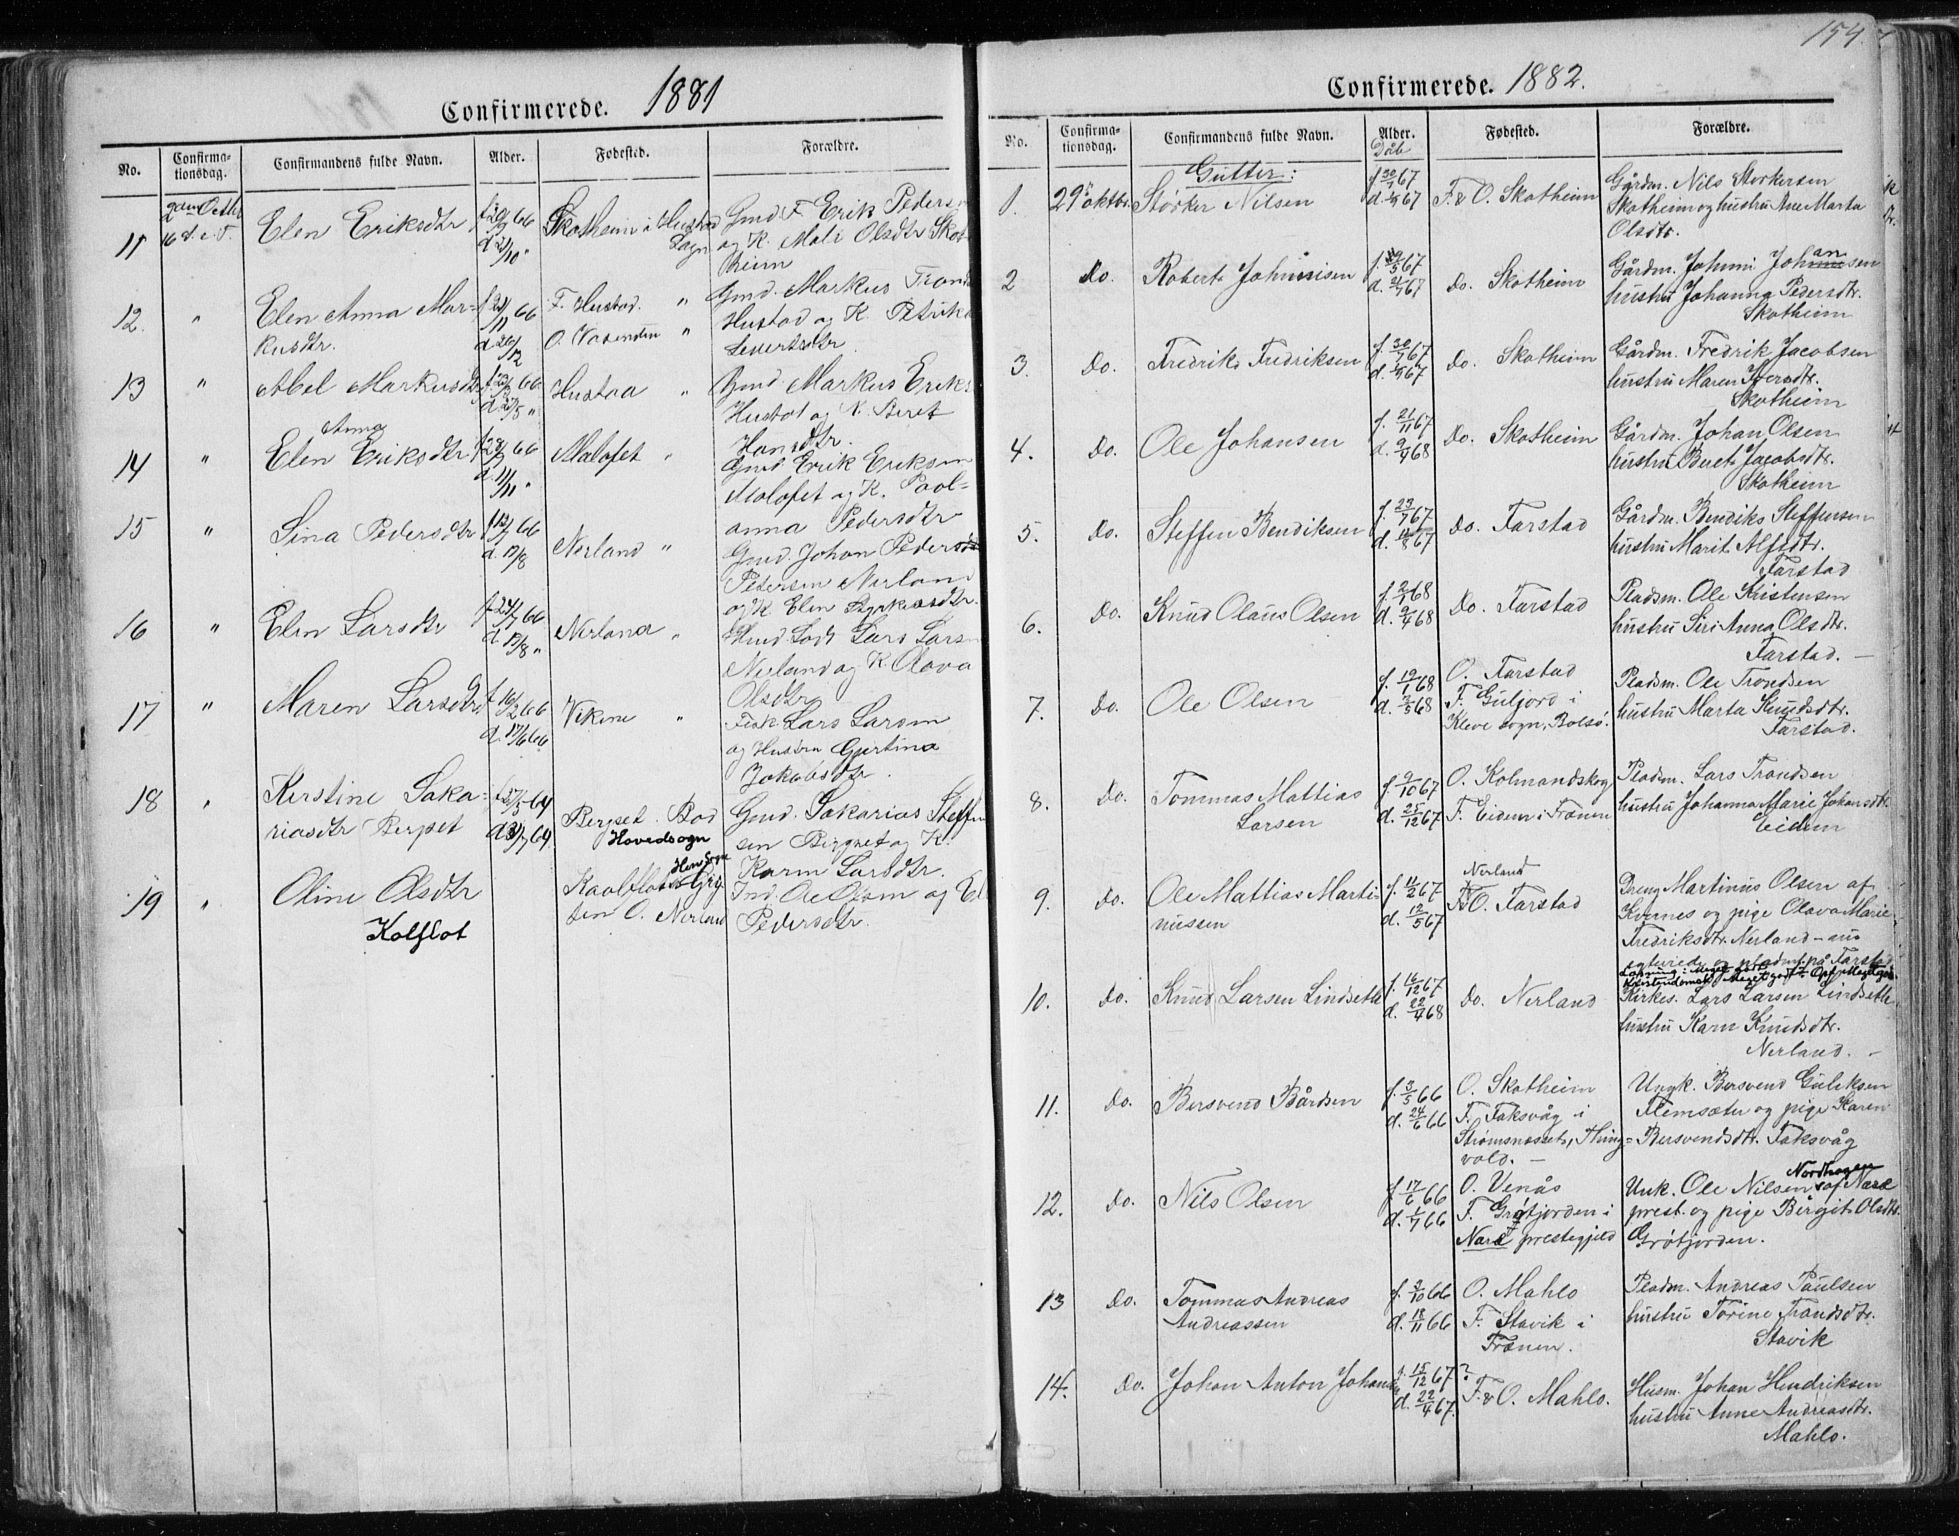 Confirmerede. 1881
No.
Confirma-
tionsdag.
Confirmandens fulde Navn.
Alder.
Fødested.
Forældre.
11
16 S. e. T.
Elen Eriksdtr
66
Skotheim i Hustad
Sogn
Gmd. F. Erik Peders
og K. Mali Olsdtr Skot
heim
12.
"
Elen Anna Mar-
kusdtr.
66
F. Hustad. "
O. Vasenden "
Gmd. Markus Trond
Hustad og K. Petrika
Severtsdtr
13
"
Abel Markusdtr
66
Hustad "
Gmd Markus Eriks
Hustad og K. Beret
Hansdtr.
14
"
Anna
Elen Eriksdtr
66
d. 11/11 "
Malefet "
Gmd Erik Eriksen
Malefet og K. Paol-
anna Pedersdtr
15
"
Sina Pedersdtr
66
d. 19/8
Nerland "
Gmd. Johan Peders
Petersen Nerland
og K. Elen Styrkersdtr.
16
"
Elen Larsdtr
66
d. 19/8 "
Nerland "
Lars Larsn
Nerland og K. Olava
Olsdtr
17
"
Maren Larsdtr
f. 16/2 66
d. 17/6 66
Vikene "
Fisk Lars Larsen
og Hustru Gjertina
Jakobsdtr.
18
"
Kerstine Saka-
riasdtr Berset
64
64
Bergset. Bod
Hovedsogn
Gmd. Sakarias Steffen
sen Bergset og K.
Karen Larsdtr.
19
"
Oline Olsdtr
Kolflot
Hen Sogn
Kaolflot Gry
ten O. Nerland
Ind. Ole Olsen og El
Pedersdtr.
154
Confirmerede. 1882.
No.
Confirma-
tionsdag.
Confirmandens fulde Navn.
Alder.
Dåb
Fødested.
Forældre.
Gutter:
1.
29 oktbr.
Størker Nilsen
67
67
F. & O. Skotheim
Gårdm. Nils Størkersen
Skotheim og hustru Ane Marta
Olsdtr.
2
Do.
Robert Johnnisen
67
67
Do. Skotheim
Gårdm. Johnni Johansen
hustru Johanna Pedersdtr.
Skotheim
3.
Do.
Fredrik Fredriksen
67
67
Do. Skotheim
Gårdm. Fredrik Jacobsen
hustru Maren Iversdtr.
Skotheim
4.
Do.
Ole Johansen
f. 21/11 67
d. 9/4 68
Do. Skotheim
Gårdm. Johan Olsen
hustru Beret Jacobsdtr.
Skotheim
5.
Do.
Steffen Bendiksen
f. 23/7 67
d. 18/8 67
Do. Farstad
Gårdm. Bendiks Steffensen
hustru Marit Alfsdtr.
Farstad
6.
Do.
Knud Olaus Olsen
f. 2/1 68
d. 9/4 68
Do. Farstad
Pladsm. Ole Kristensen
hustru Siri Anna Olsdtr.
Farstad. —
7.
Do.
Ole Olsen
f. 19/1 68
d. 3/5 68
O. Farstad
F. Guljord i
Kleve sogn, Bolsø.
Pladsm. Ole Trondsen
hustru Marta Knudsdtr.
Farstad.
8.
Do.
Tommas Mattias
Larsen
f. 9/10 67
d. 25/12 67
O. Kolmandskog
F. Eidem i Frænen
Pladsm. Lars Trondsen
hustru Johanna Marie Johansdtr
Eidem
9.
Do.
Ole Mattias Marti-
nussen
f. 11/2 67
d. 12/5 67
Nerland
F. O. Farstad
Dreng Martinus Olsen af
Kvernes og pige Olava Marie
Fredriksdtr. Nerland — nu
på Farstad
10.
Do.
Knud Larsen Lindseth
f. 16/12 67
d. 22/4 68
Do. Nerland
Kirkes. Lars Larsen Lindseth
hustru Karn Knudsdtr.
Nerland. —
11.
Do.
Bersvend Bårdsen
f. 3/5 66
d. 24/6 66
O. Skotheim
F. Faksvåg i
Strømsnæsset, Thing-
vold. —
Ungk. Bersvend Guliksen
Flemsæter og pige Karen
Bersvendsdtr. Faksvåg
12.
Do.
Nils Olsen
f. 17/6 66
d. 1/7 66
O. Venås
F. Grøtfjorden i
Narø prestegjeld
Nordhagen
Unk. Ole Nilsen af Narø
prest. og pige Bergit Olsdtr.
Grøtfjorden.
13
Do.
Tommas Andreas
Andreassen
f. 2/10 66
d. 18/11 66
O. Mahlo
F. Stavik i
Frænen.
Pladsm. Andreas Paulsen
hustru Torine Trondsdtr.
Stavik
14.
Do.
Johan Anton Johansen
f. 15/12 67?
d. 22/4 67.
F. & O. Mahlo.
Husm. Johan Hendriksen
hustru Anne Andreasdtr.
Mahlo.